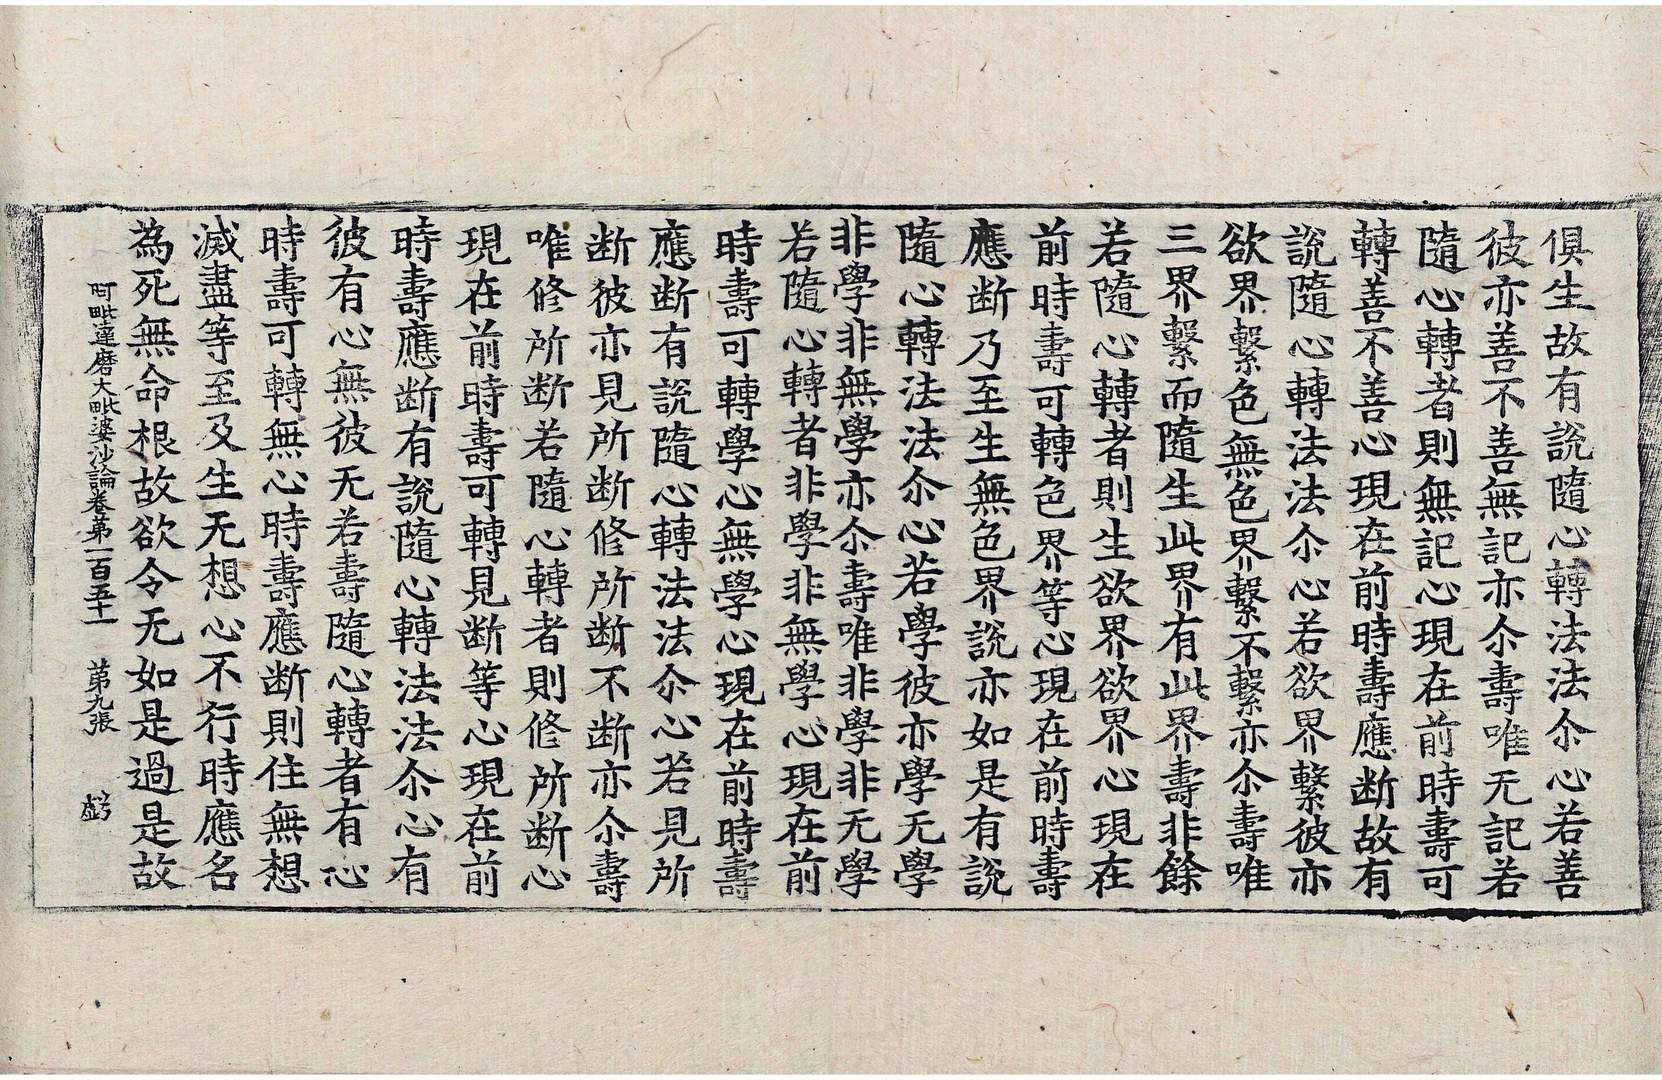 俱生故有說隨心轉法法尒心若善
彼亦善不善無記亦尒壽唯无記若
隨心轉者則無記心現在前時壽可
轉善不善心現在前時壽應断故有
說隨心轉法法尒心若欲界繫彼亦
欲界繫色無色界繫不繫亦尒壽唯
三界繫而隨生此界有此界壽非餘
若隨心轉者則生欲界欲界心現在
前時壽可轉色界等心現在前時壽
應断乃至生無色界說亦如是有說
隨心轉法法尒心若學彼亦學无學
非學非無學亦尒壽唯非學非无學
若隨心轉者非學非無學心現在前
時壽可轉學心無學心現在前時壽
應断有說隨心轉法法尒心若見所
断彼亦見所断修所断不断亦尒壽
唯修所断若隨心轉者則修所断心
現在前時壽可轉見断等心現在前
時壽應断有說隨心轉法法尒心有
彼有心無彼无若壽隨心轉者有心
時壽可轉無心時壽應断則住無想
滅盡等至及生无想心不行時應名
為死無命根故欲令无如是過是故
阿毗達磨大毗婆沙論卷第一百五十一 第九張 虧